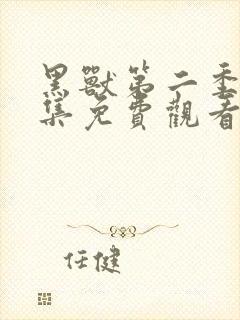 黑獸第二季
集免費觀看
任健